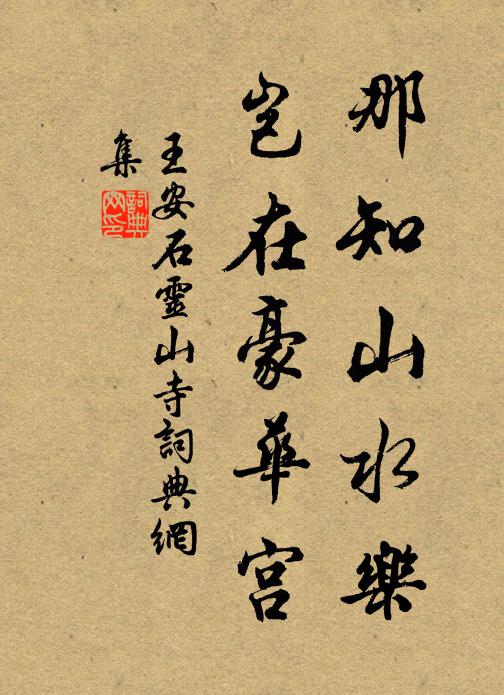 那知山水樂
豈在豪華宫
王安石靈山寺詞典網
集
詞典
网印